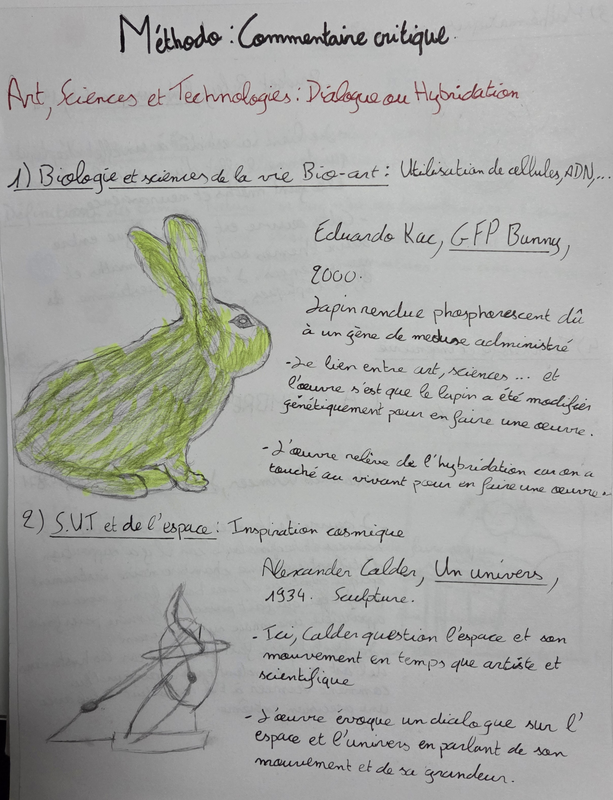 Méthodo : Commentaire critique.
Art, Sciences et Technologies : Dialogue ou Hybridation
1) Biologie et sciences de la vie Bio-art : Utilisation de cellules, ADN, ...
Eduardo Kac, GFP Bunny,
2000.
Lapin rendue phosphorescent dû
à un gène de meduse administré
- Le lien entre art, sciences ... et
l'œuvre s'est que le lapin a été modifier
génétiquement pour en faire une œuvre.
- L'œuvre relève de l'hybridation car on a
touché au vivant pour en faire une œuvre.
2) S.V.T et de l'espace : Inspiration cosmique
Alexander Calder, Un univers,
1934. Sculpture.
- Ici, Calder question l'espace et son
mouvement en temps que artiste et
scientifique
- L'œuvre évoque un dialogue sur l'
espace et l'univers en parlant de son
mouvement et de sa grandeur.